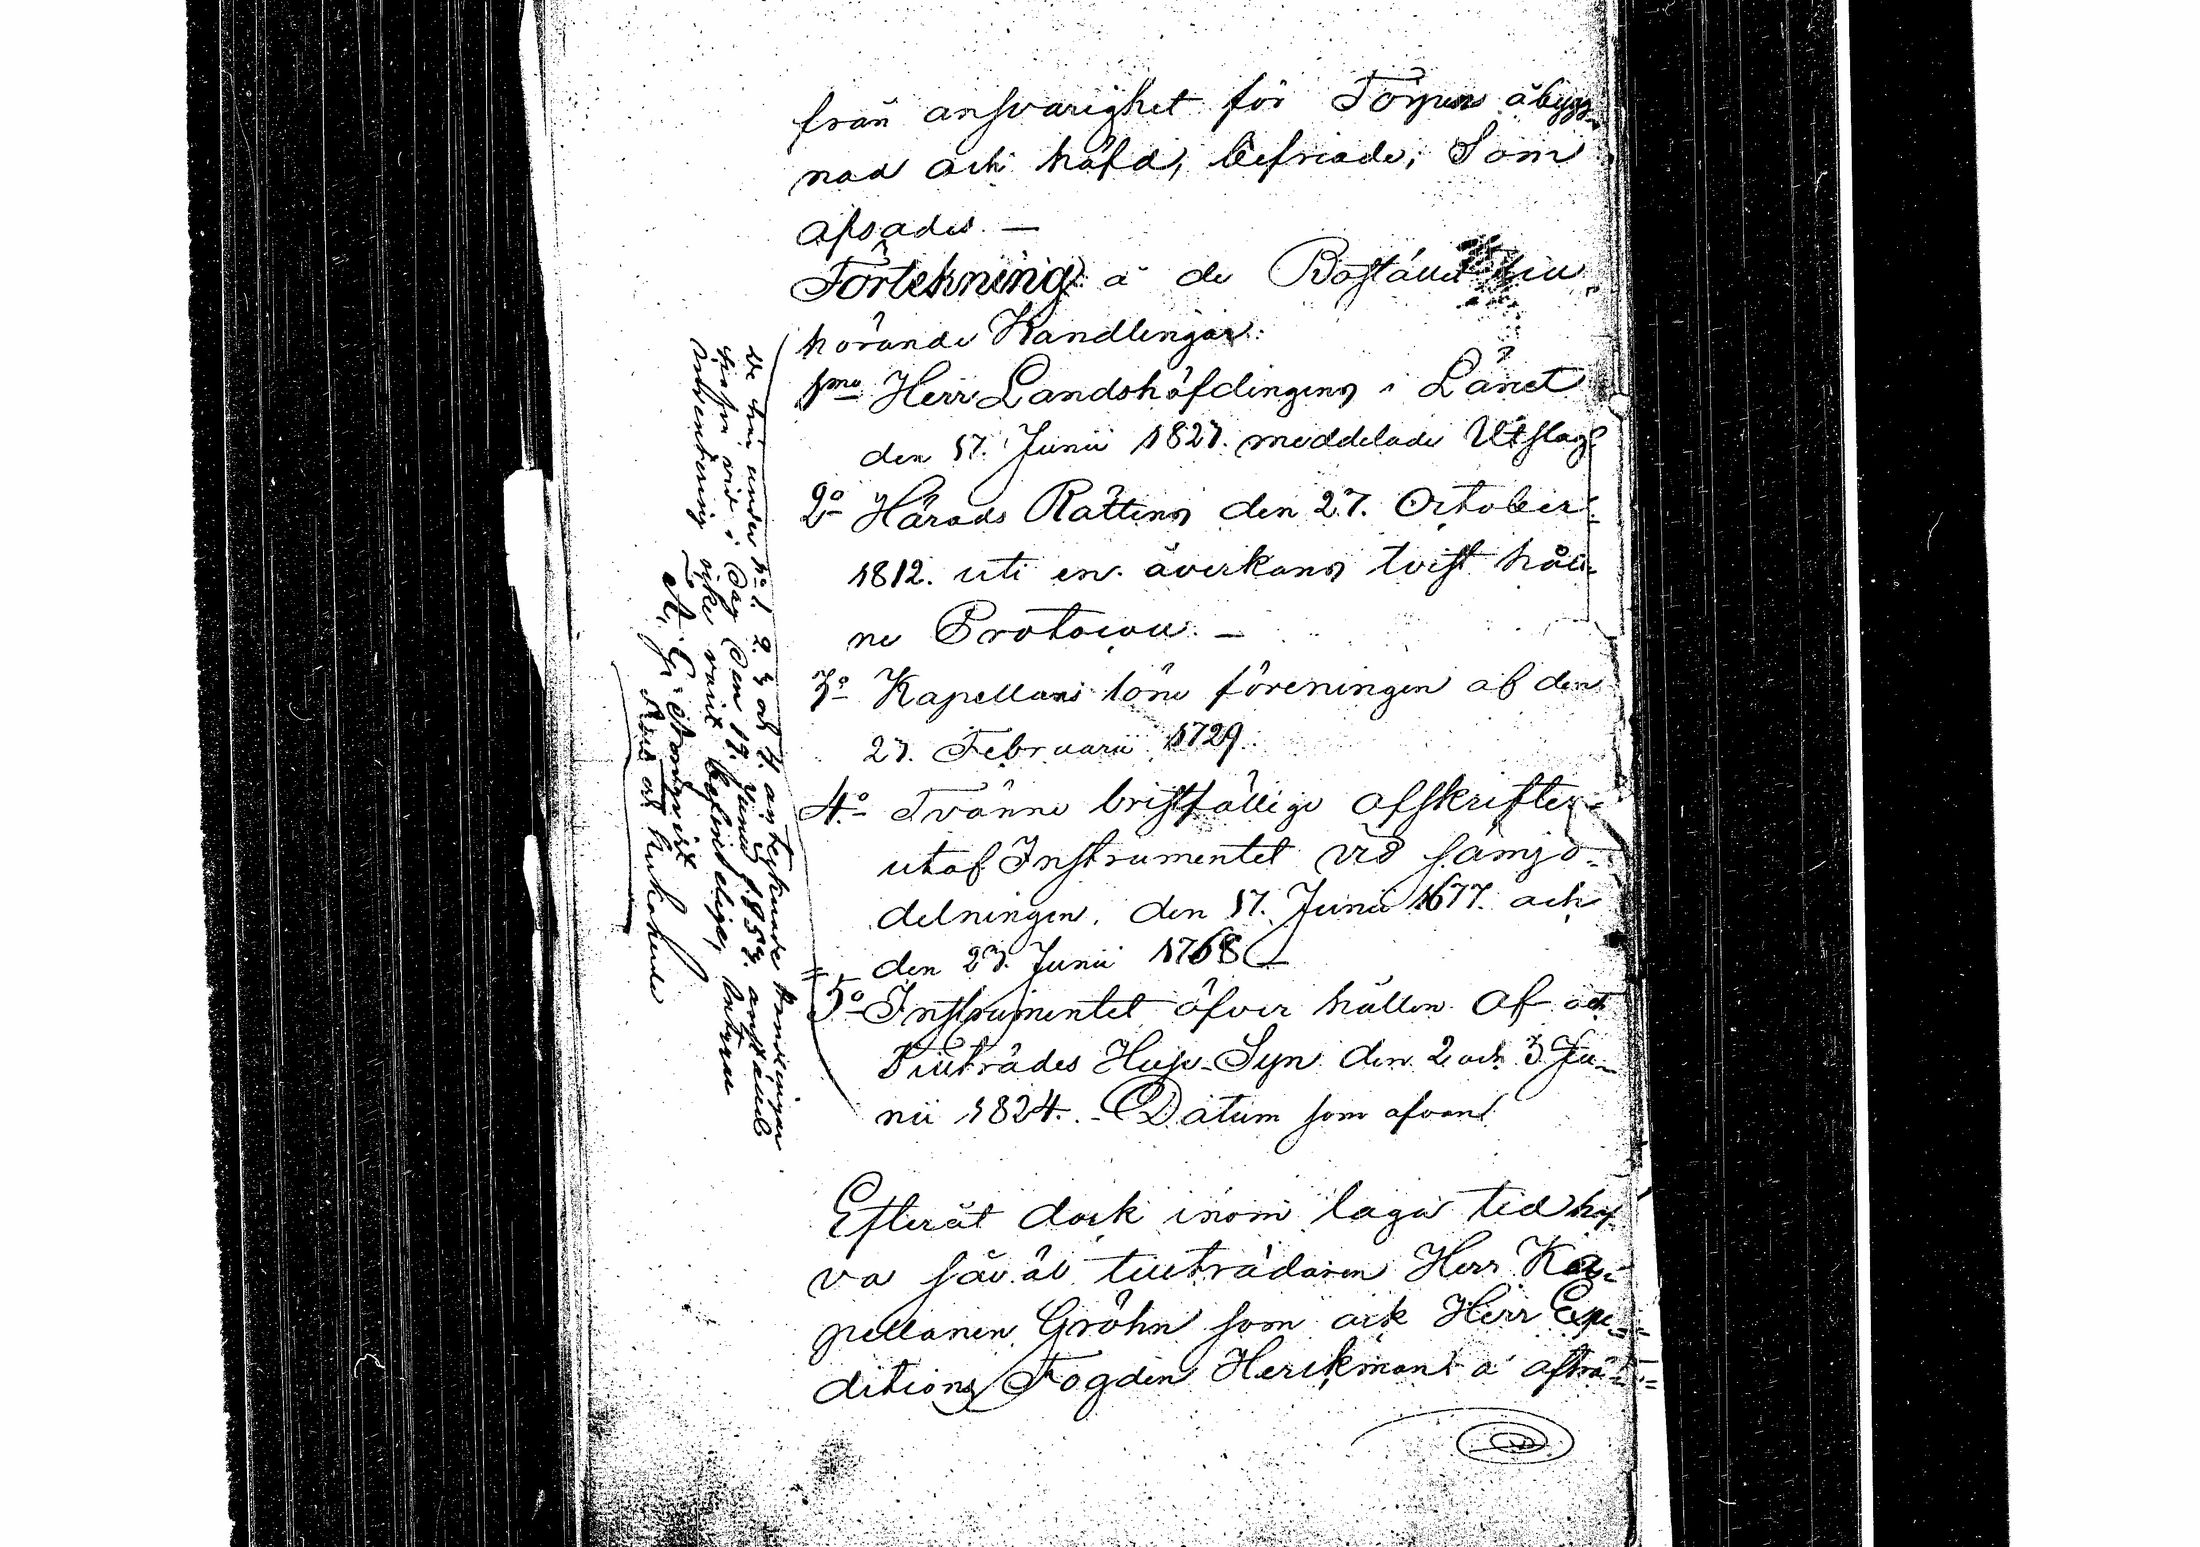 från ansvarighet för Torpens åbygg-
nad och häfd, befriade; Som
afsades. —
Förtekning å de Bostället till
hörande Handlingar:
1mo Herr Landshöfdingens i Länet
den 17. Junii 1827. meddelade Utslag
2o Härads Rättens den 27. October
1812. uti en åverkans tvist håll-
ne Protocoll. —
3o Kapellans löne föreningen af den
27. Februarii 1729.
4o Tvänne bristfällige afskrifter
utaf Instrumentet vid sämjo-
delningen, den 17. Junii 1677. och
den 27. Junii 1768
5o Instrumentet öfver hållen Af och
Tillträdes Huse-Syn den 2 och 3 Ju-
nii 1824. - Datum som ofvan
De här under No 1. 2. 3 och 4. antecknade handlingar
vid i Dag den 17. Junii anstäld
inventering icke varit befinteliga,
Efteråt dock inom laga tid haf-
va såväl tillträdaren Herr Ka-
pellanen Gröhn som ock Herr Expe-
ditions Fogden Herckman å afträ-